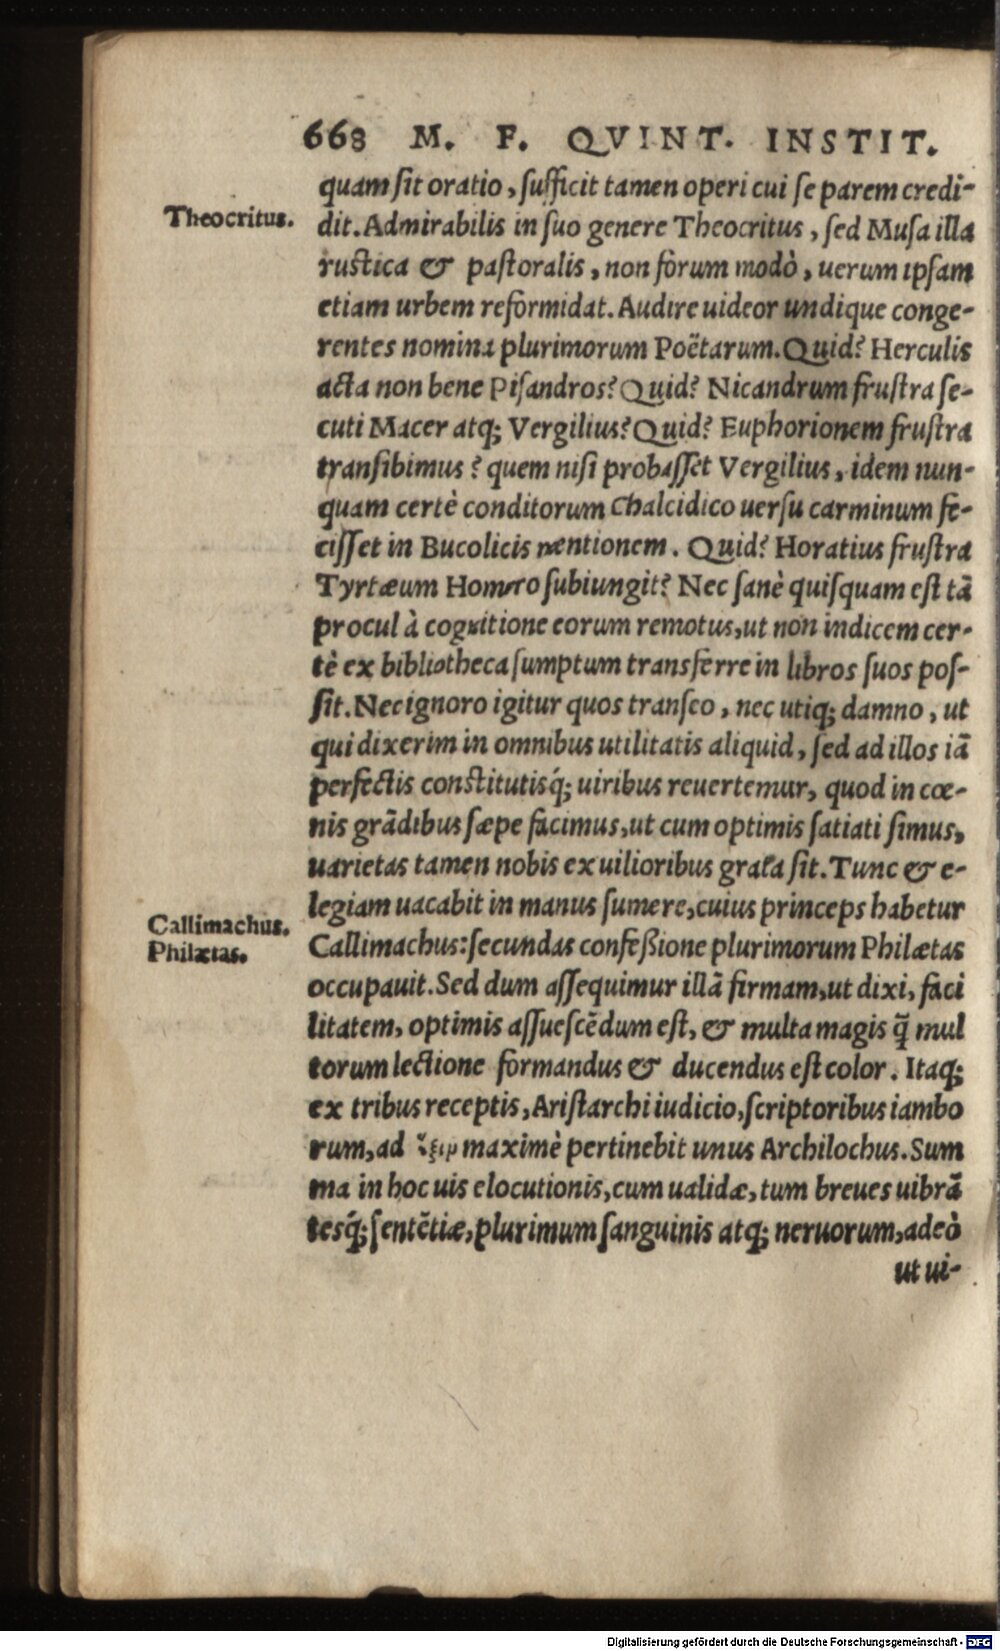 668 M. F. QVINT. INSTIT.
quam ſit oratio, ſufficit tamen operi cui ſe parem credi-
Theocritus.
dit. Admirabilis in ſuo genere Theocritus, ſed Muſa illa
ruſtica & paſtoralis, non forum modò, uerum ipſam
etiam urbem reformidat. Audire uideor undique conge-
rentes nomina plurimorum Poëtarum. Quid? Herculis
acta non bene Piſandros? Quid? Nicandrum fruſtra ſe-
cuti Macer atq; Vergilius? Quid? Euphorionem fruſtra
tranſibimus? quem niſi probaſſet Vergilius, idem nun-
quam certè conditorum Chalcidico uerſu carminum fe-
ciſſet in Bucolicis mentionem. Quid? Horatius fruſtra
Tyrtæum Homero ſubiungit? Nec ſanè quiſquam eſt tã
procul à cognitione eorum remotus, ut non indicem cer-
tè ex bibliotheca ſumptum transferre in libros ſuos poſ-
ſit. Nec ignoro igitur quos tranſeo, nec utiq; damno, ut
qui dixerim in omnibus utilitatis aliquid, ſed ad illos iã
perfectis conſtitutisq́; uiribus reuertemur, quod in cœ-
nis grãdibus ſæpe facimus, ut cum optimis ſatiati ſimus,
uarietas tamen nobis ex uilioribus grata ſit. Tunc & e-
legiam uacabit in manus ſumere, cuius princeps habetur
Callimachus.
Philætas.
Callimachus: ſecundas confeßione plurimorum Philætas
occupauit. Sed dum aſſequimur illã firmam, ut dixi, faci
litatem, optimis aſſueſcẽdum eſt, & multa magis q̃ mul
torum lectione formandus & ducendus eſt color. Itaq;
ex tribus receptis, Ariſtarchi iudicio, ſcriptoribus iambo
rum, ad ἕξιν maximè pertinebit unus Archilochus. Sum
ma in hoc uis elocutionis, cum ualidæ, tum breues uibrã
tesq́; ſentẽtiæ, plurimum ſanguinis atq; neruorum, adeò
ut ui-
Digitalisierung gefördert durch die Deutsche Forschungsgemeinschaft - DFG